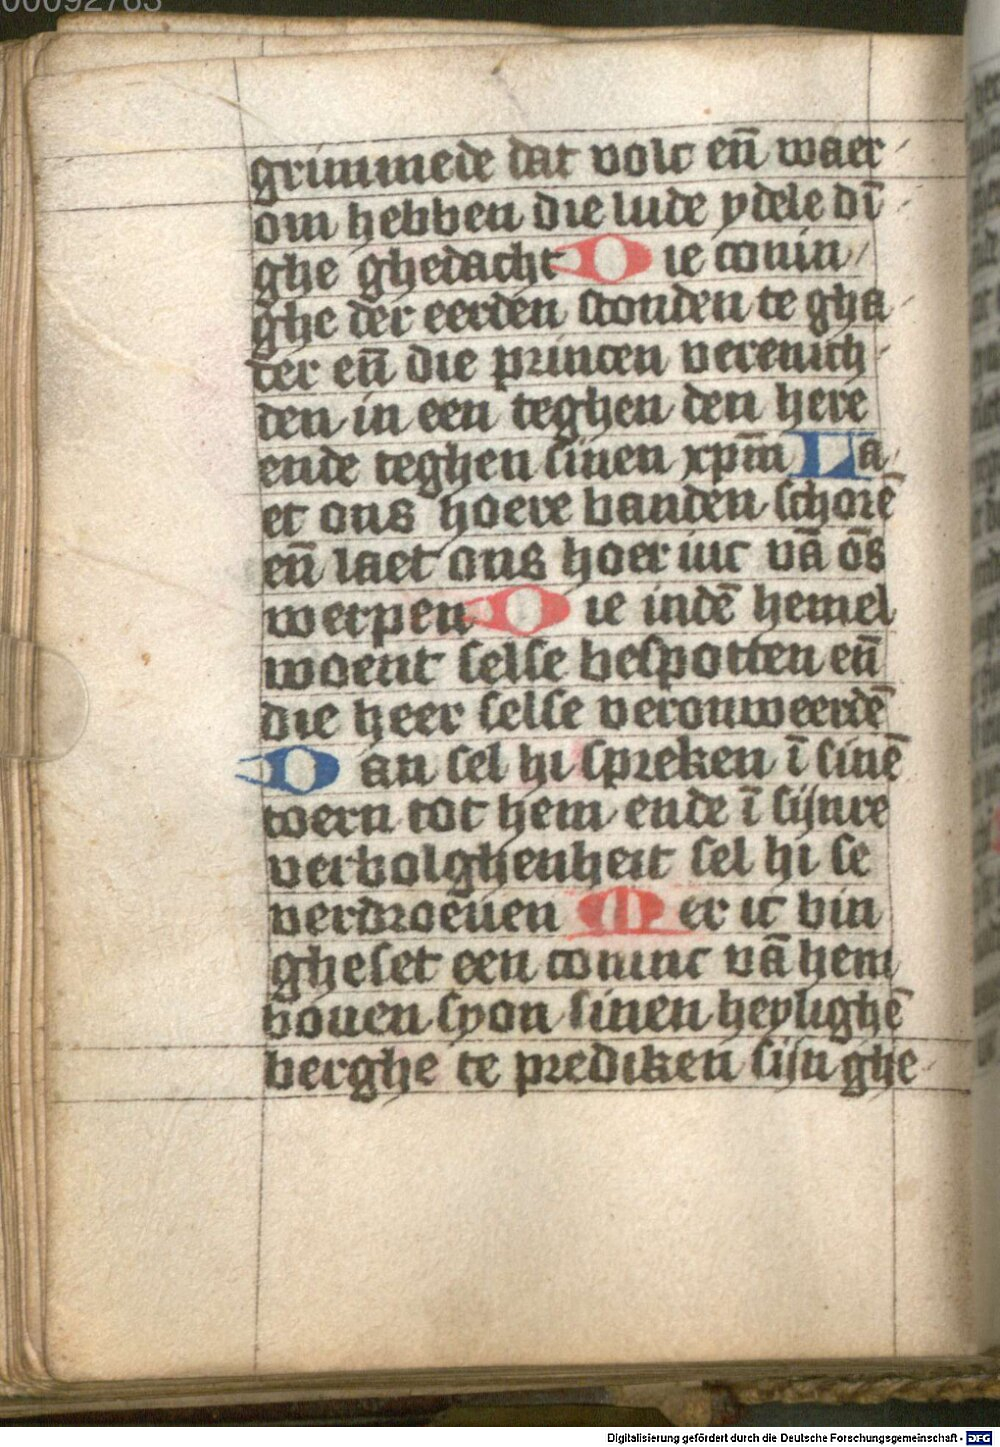 00092763
grimmede dat volc en̄ waer
om hebben die lude ydele dī
ghe ghedacht Die conin
ghe der eerden stonden te gha
der en̄ die princen verenich
den in een teghen den here
ende teghen sinen xpm̄ La
et ons hoere banden schorē
en̄ laet ons hoer iuc vā ōs
werpen Die indē hemel
woent selse bespotten en̄
die heer selse veronweerdē
Dan sel hi spreken ī sinē
toern tot hem ende ī sijnre
verbolghenheit sel hi se
verdroeuen Mer ic bin
gheset een coninc vā hem
bouen syon sinen heylighē
berghe te prediken sijn ghe
Digitalisierung gefördert durch die Deutsche Forschungsgemeinschaft - DFG